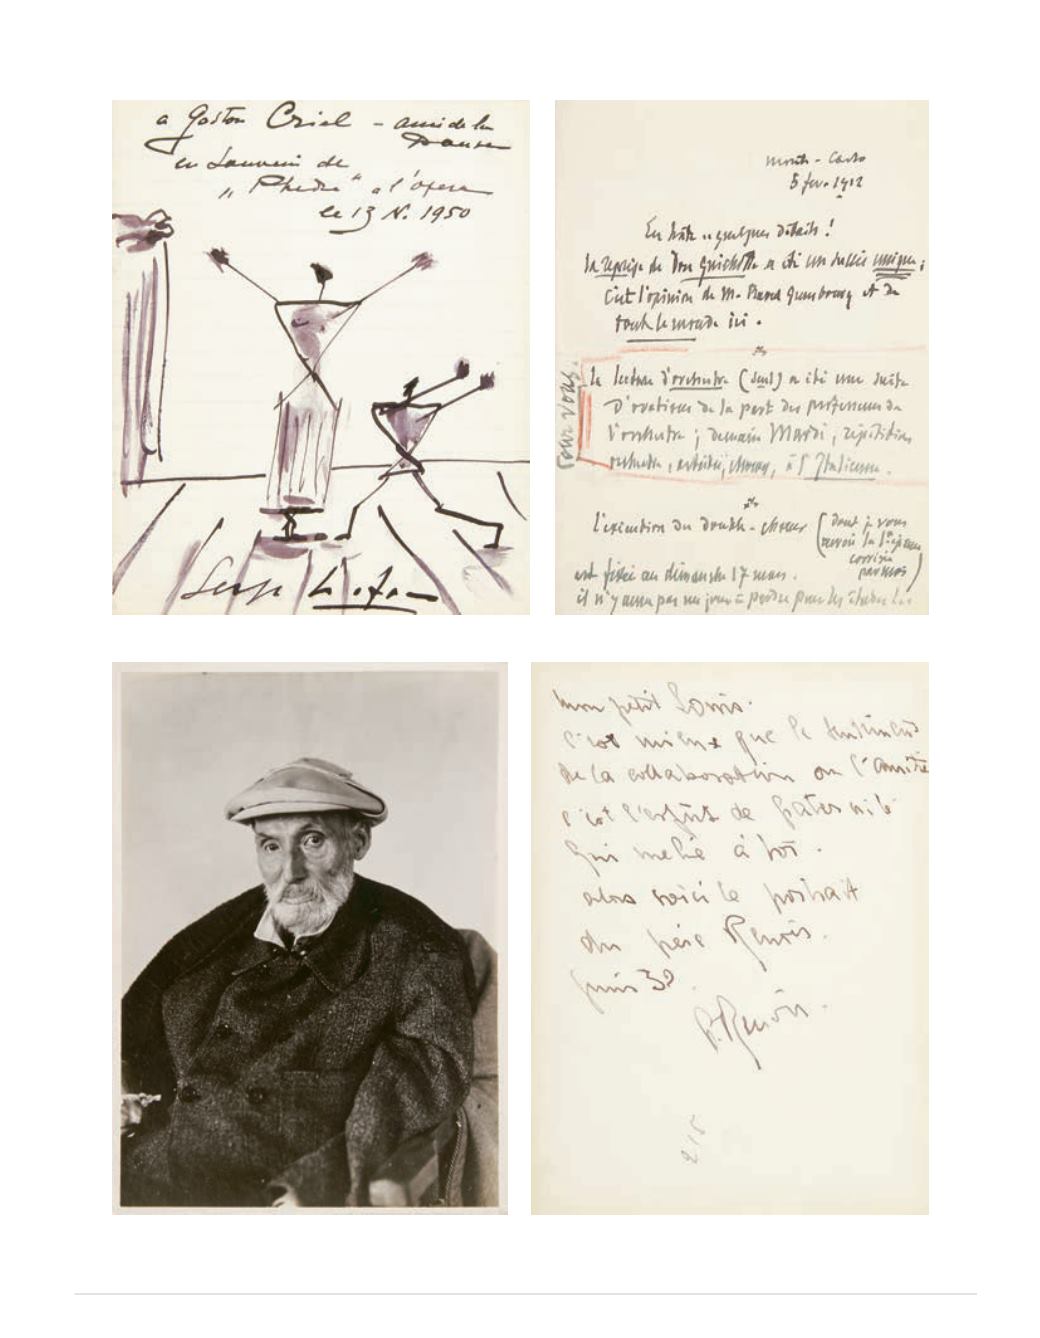 a Gaston Criel - ami de la
Danse
en Souvenir de
"Phedre" a l'opera
le 13 N. 1950
Serge Lifar
Monte-Carlo
5 fev. 1912
En hâte.. quelques détails!
la reprise de Don Quichotte a été un succès unique;
C'est l'opinion de M. Raoul Gunsbourg et de
tout le monde ici.
Pour vous.
la lecture d'orchestre (seul) a été une suite
D'ovations de la part des professeurs de
l'orchestre; demain Mardi, répétition
orchestre, artistes, choeurs, à l'Italienne.
l'exécution du double-choeur (dont je vous
envoie la 1re épreuve
corrigée
par moi)
est fixée au dimanche 17 mars.
il n'y aura pas un jour à perdre pour les études
mon petit Louis.
c'est mieux que le sentiment
de la collaboration ou l'amitié
c'est l'esprit de paternité
qui me lie à toi.
alors voici le portrait
du père Renoir.
juin 39.
P. Renoir.
215